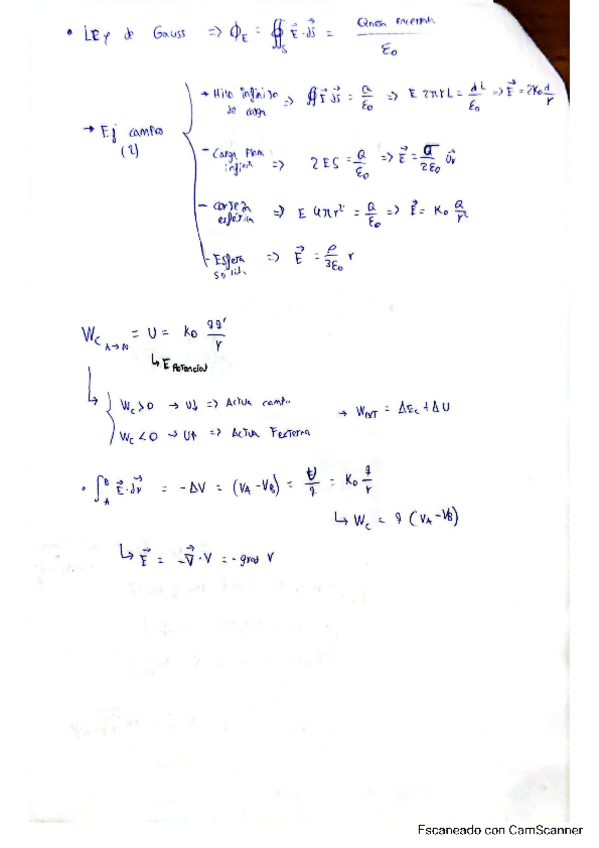 • Ley de Gauss => ϕ_E = ∯_S E⃗·dS⃗ = Qneta encerrada / ε₀
→ Ej campos (2)
→ Hilo infinito de carga => ∯ E⃗ dS⃗ = Q/ε₀ => E 2πrL = λL/ε₀ => E⃗ = 2K₀ λ/r
- Carga Plana infinita => 2ES = Q/ε₀ => E⃗ = σ/2ε₀ u⃗r
- Corteza esférica => E 4πr² = Q/ε₀ => E⃗ = K₀ Q/r²
- Esfera solida => E⃗ = ρ/3ε₀ r
W_C A→∞ = U = K₀ qq'/r
↳ E Potencial
↳ W_C > 0 → U↓ => Actua campo
W_C < 0 → U↑ => Actua Fexterna
→ W_EXT = ΔE_C + ΔU
• ∫_A^B E⃗·dr⃗ = -ΔV = (V_A - V_B) = U/q = K₀ q/r
↳ W_C = q (V_A - V_B)
↳ E⃗ = -∇⃗·V = -grad V
Escaneado con CamScanner